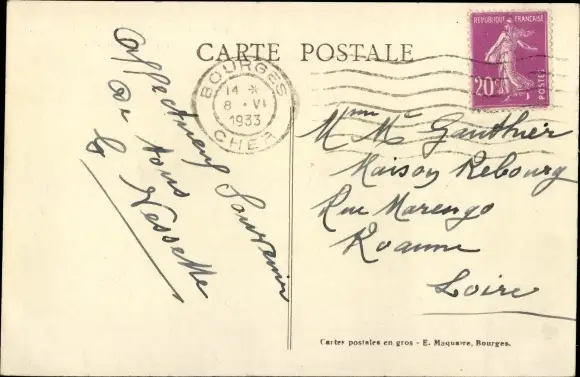 CARTE POSTALE
RÉPUBLIQUE FRANÇAISE
20c
POSTES
BOURGES
14 *
8 · VI
1933
CHER
Affectueux Souvenir
à tous
Mme Mr Gauthier
Maison Rebourg
Rue Marengo
Roanne
Loire
Cartes postales en gros - E. Maquaire, Bourges.